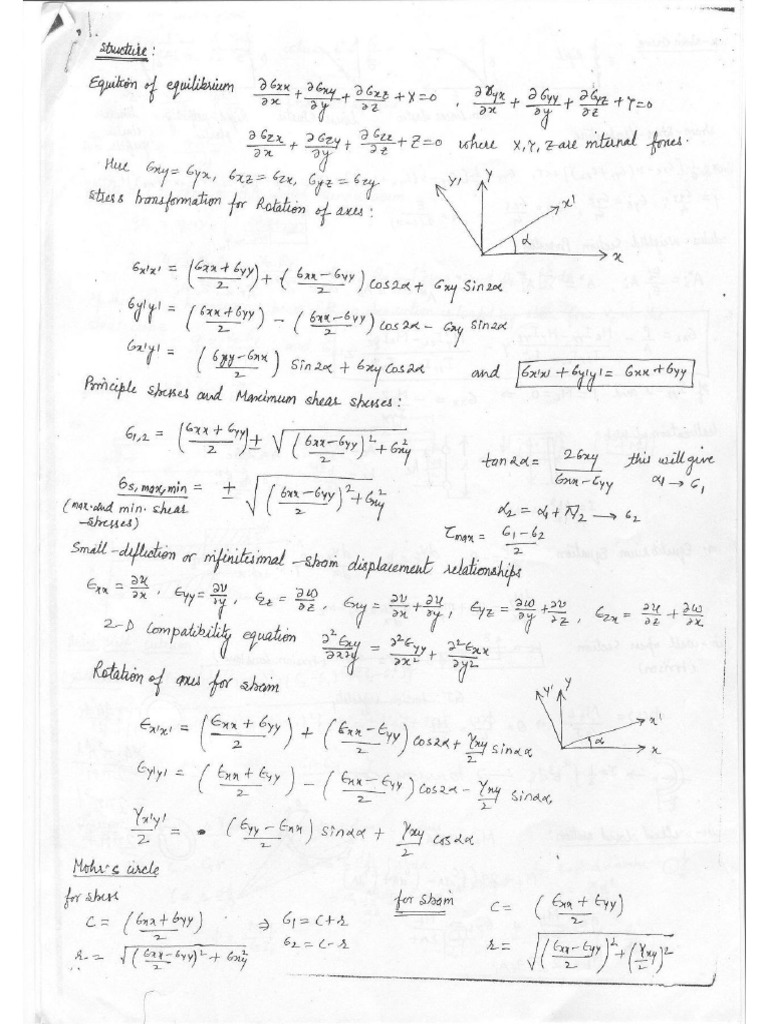 Structure:
Equition of equilibrium ∂σxx/∂x + ∂σxy/∂y + ∂σxz/∂z + X = 0 , ∂σyx/∂x + ∂σyy/∂y + ∂σyz/∂z + Y = 0
∂σzx/∂x + ∂σzy/∂y + ∂σzz/∂z + Z = 0 where X, Y, Z are internal forces.
Here σxy = σyx, σxz = σzx, σyz = σzy
Stress transformation for Rotation of axes:
y' y x' α x
σx'x' = (σxx + σyy / 2) + (σxx - σyy / 2) cos2α + σxy sin2α
σy'y' = (σxx + σyy / 2) - (σxx - σyy / 2) cos2α - σxy sin2α
σx'y' = (σyy - σxx / 2) sin2α + σxy cos2α and σx'x' + σy'y' = σxx + σyy
Principle stresses and Maximum shear stresses:
σ1,2 = (σxx + σyy / 2) ± √((σxx - σyy / 2)² + σxy²)
tan2α = 2σxy / σxx - σyy this will give α1 → σ1
σs,max,min = ± √((σxx - σyy / 2)² + σxy²)
(max. and min. shear stresses)
α2 = α1 + π/2 → σ2
τmax = σ1 - σ2 / 2
Small-deflection or infinitesimal-strain displacement relationships
ϵxx = ∂u/∂x, ϵyy = ∂v/∂y, ϵzz = ∂w/∂z, ϵxy = ∂v/∂x + ∂u/∂y, ϵyz = ∂w/∂y + ∂v/∂z, ϵzx = ∂u/∂z + ∂w/∂x
2-D Compatibility equation ∂²ϵxy/∂x∂y = ∂²ϵyy/∂x² + ∂²ϵxx/∂y²
Rotation of axes for strain
y' y x' α x
ϵx'x' = (ϵxx + ϵyy / 2) + (ϵxx - ϵyy / 2) cos2α + γxy/2 sin2α
ϵy'y' = (ϵxx + ϵyy / 2) - (ϵxx - ϵyy / 2) cos2α - γxy/2 sin2α,
γx'y'/2 = (ϵyy - ϵxx / 2) sin2α + γxy/2 cos2α
Mohr's circle
for stress
c = (σxx + σyy / 2) ⇒ σ1 = c + r
r = √((σxx - σyy / 2)² + σxy²) σ2 = c - r
for strain
c = (ϵxx + ϵyy / 2)
r = √((ϵxx - ϵyy / 2)² + (γxy/2)²)